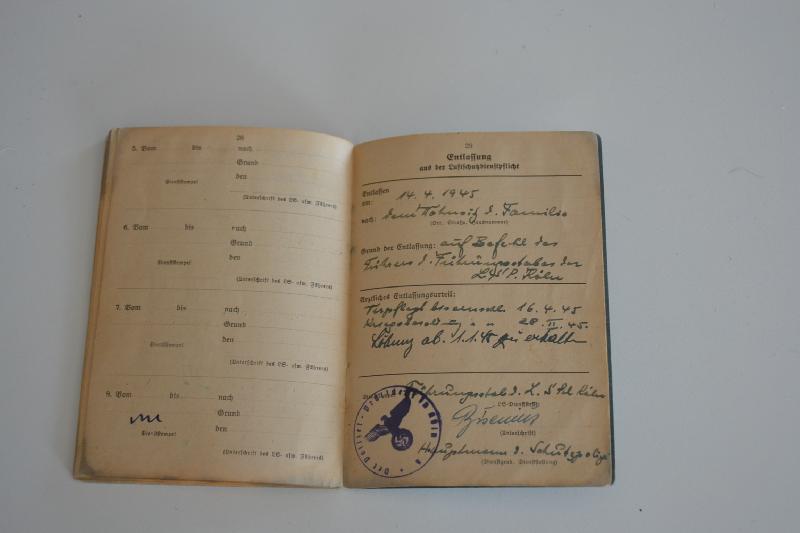 28
5. Vom bis nach
Grund
Dienststempel den
(Unterschrift des LS- usw. Führers)
6. Vom bis nach
Grund
Dienststempel den
(Unterschrift des LS- usw. Führers)
7. Vom bis nach
Grund
Dienststempel den
(Unterschrift des LS- usw. Führers)
9. Vom bis nach
Grund
Dienststempel den
(Unterschrift des LS- usw. Führers)
29
Entlassung
aus der Luftschutzdienstpflicht
Entlassen
am: 14. 4. 1945
nach: dem Wohnsitz d. Familie
(Ort, Straße, Hausnummer)
Grund der Entlassung: auf Befehl des
Führers d. Führungsstabes der
L.S.P. Köln
Ärztliches Entlassungsurteil:
Verpflegt bis einschl. 16. 4. 45
28. II. 45.
Löhnung ab 1.1.45 zu erhalten
Führungsstab d. L. S. Köln
(LS-Dienststelle)
(Unterschrift)
Hauptmann d. Schutzpolizei
(Dienstgrad, Dienststellung)
Der Polizei-Präsident in Köln